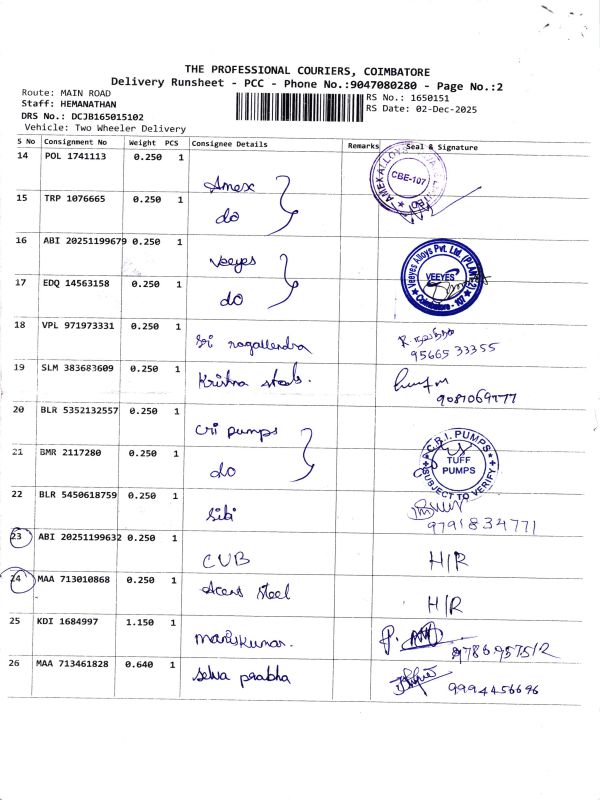 THE PROFESSIONAL COURIERS, COIMBATORE
Delivery Runsheet - PCC - Phone No.:9047080280 - Page No.:2
Route: MAIN ROAD
RS No.: 1650151
Staff: HEMANATHAN
RS Date: 02-Dec-2025
DRS No.: DCJB165015102
Vehicle: Two Wheeler Delivery
S No Consignment No Weight PCS Consignee Details Remarks Seal & Signature
14 POL 1741113 0.250 1 Amex CBE-107
15 TRP 1076665 0.250 1 do
16 ABI 20251199679 0.250 1 Veeyes Veeyes Alloys Pvt. Ltd. VEEYES Coimbatore - 107
17 EDQ 14563158 0.250 1 do
18 VPL 971973331 0.250 1 Sri nagallendra 95665 33355
19 SLM 383683609 0.250 1 Krishna steels. 9087069777
20 BLR 5352132557 0.250 1 cri pumps
21 BMR 2117280 0.250 1 do C.R.I. PUMPS TUFF PUMPS SUBJECT TO VERIFY
22 BLR 5450618759 0.250 1 Sibi 9791834771
23 ABI 20251199632 0.250 1 CUB H/R
24 MAA 713010868 0.250 1 Acens steel H/R
25 KDI 1684997 1.150 1 Mariskumar. 9786957512
26 MAA 713461828 0.640 1 selva prabha 9994456696